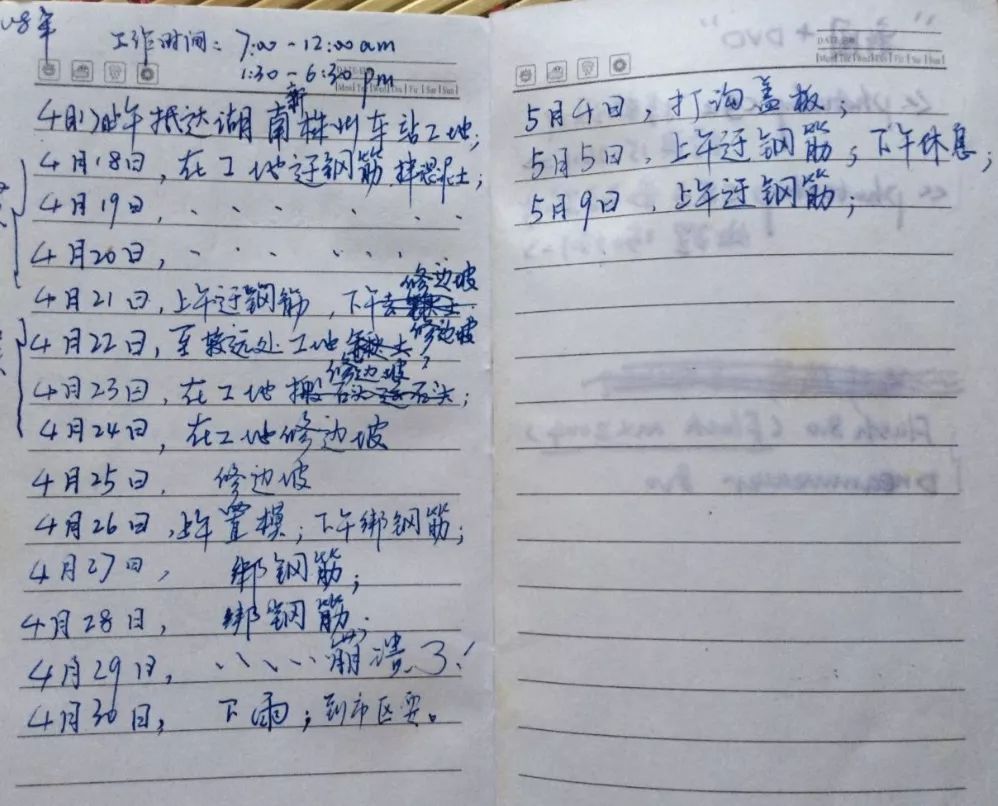 08年
工作时间: 7:00-12:00am
1:30-6:30 pm
4月17日上午抵达湖南株州新车站工地;
4月18日,在工地运钢筋,拌混泥土;
4月19日,、、、、、、
4月20日,、、、、、、
4月21日,上午运钢筋,下午去修边坡
4月22日,至较远处工地修边坡
4月23日,在工地修边坡;
4月24日,在工地修边坡
4月25日, 修边坡
4月26日,上午置模;下午绑钢筋;
4月27日, 绑钢筋;
4月28日, 绑钢筋;
4月29日, 、、、、崩溃了!
4月30日; 下雨;到市区耍。
5月4日,打沟盖板;
5月5日,上午运钢筋;下午休息;
5月9日,上午运钢筋;